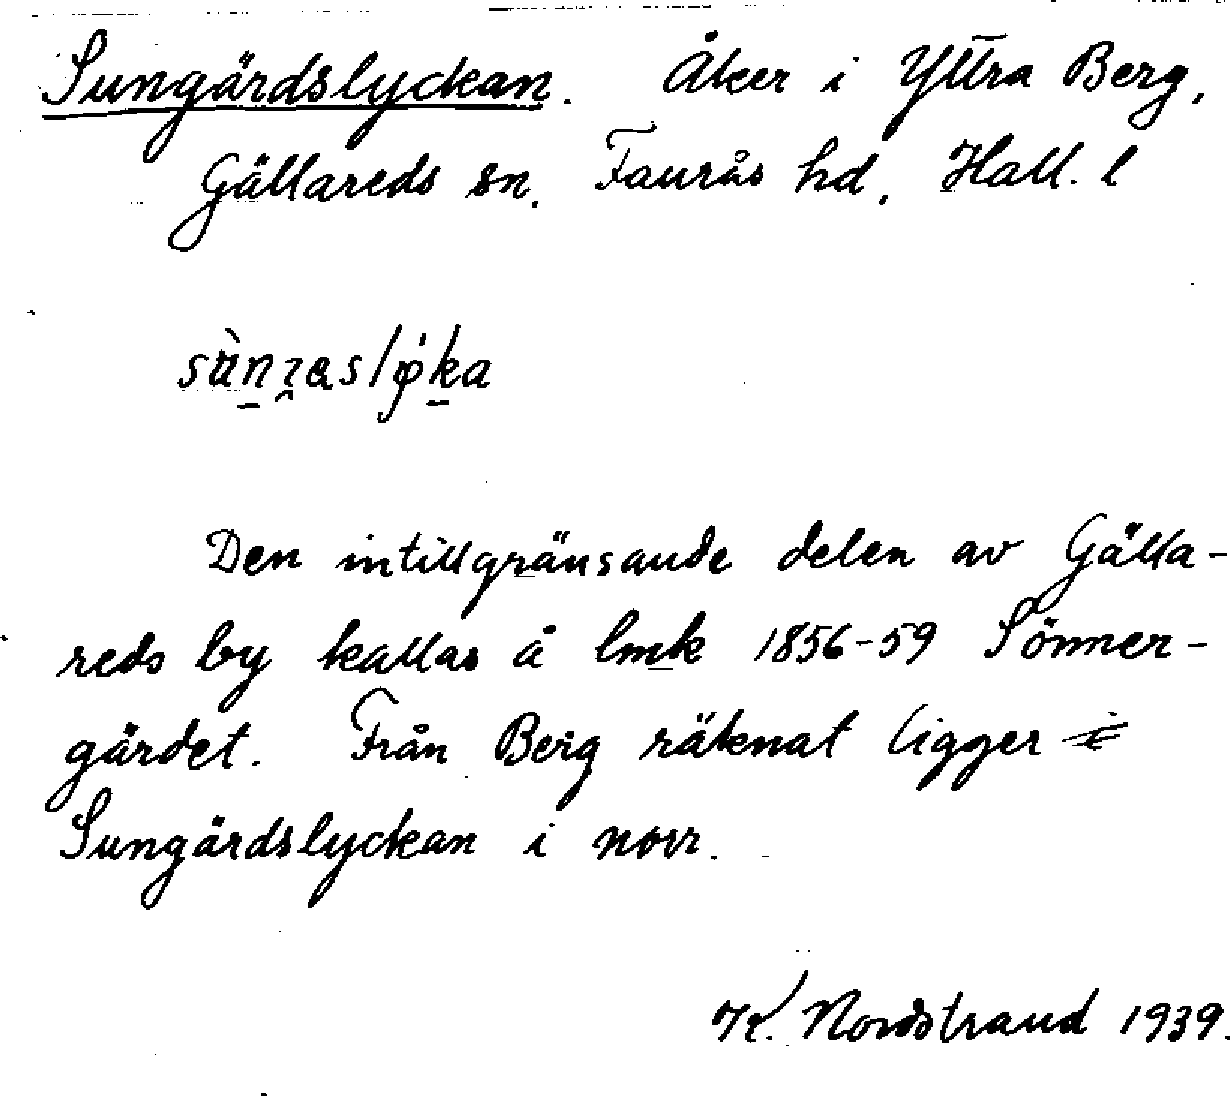 Sungärdslyckan. Åker i Yttra Berg,
Gällareds sn. Faurås hd. Hall. l
Den intillgränsande delen av Gälla-
reds by kallas å lmk 1856-59 Sönner-
gärdet. Från Berg räknat ligger
Sungärdslyckan i norr.
K. Nordstrand 1939.